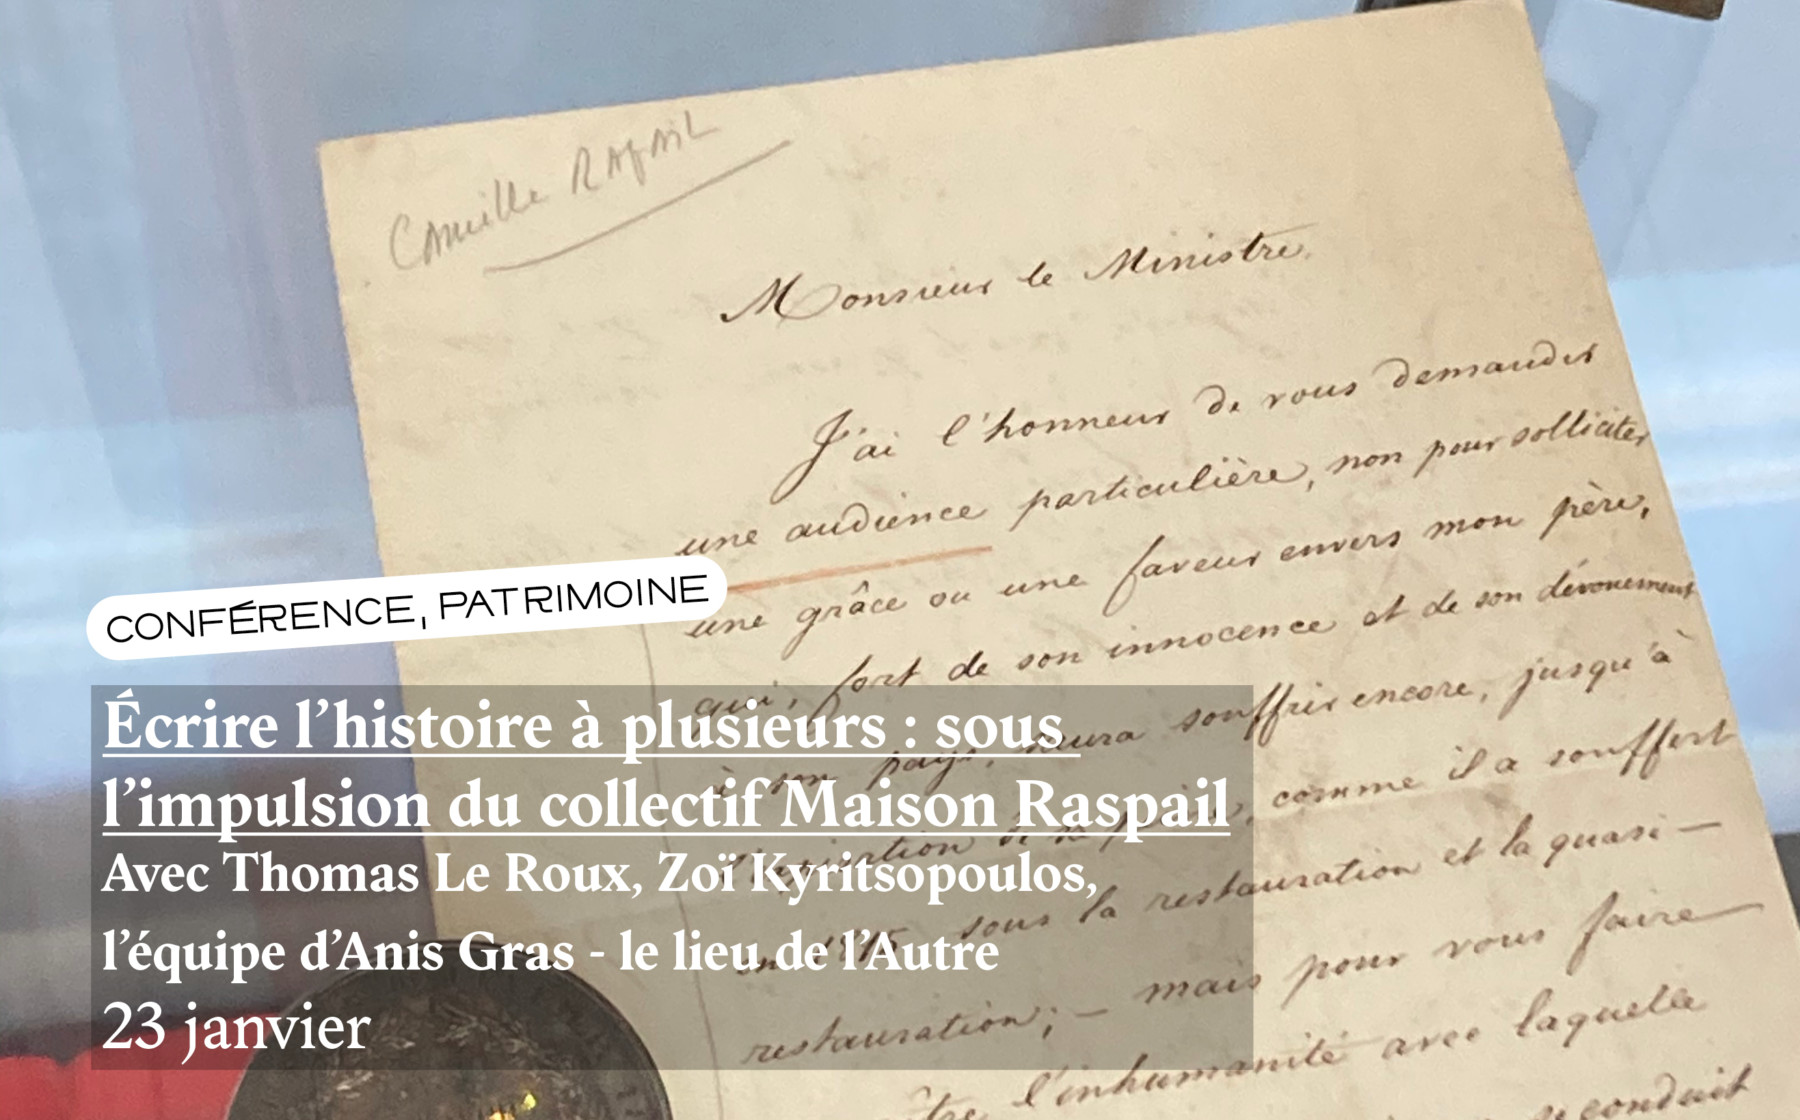 Camille RASPAIL
Monsieur le Ministre,
J'ai l'honneur de vous demander
une audience particulière, non pour solliciter
une grâce ou une faveur envers mon père,
qui, fort de son innocence et de son dévouement
à son pays, saura souffrir encore, jusqu'à
l'expiration de sa peine, comme il a souffert
en 1815 sous la restauration et la quasi-
restauration; - mais pour vous faire
l'inhumanité avec laquelle
se conduit
CONFÉRENCE, PATRIMOINE
Écrire l'histoire à plusieurs : sous
l'impulsion du collectif Maison Raspail
Avec Thomas Le Roux, Zoï Kyritsopoulos,
l'équipe d'Anis Gras - le lieu de l'Autre
23 janvier